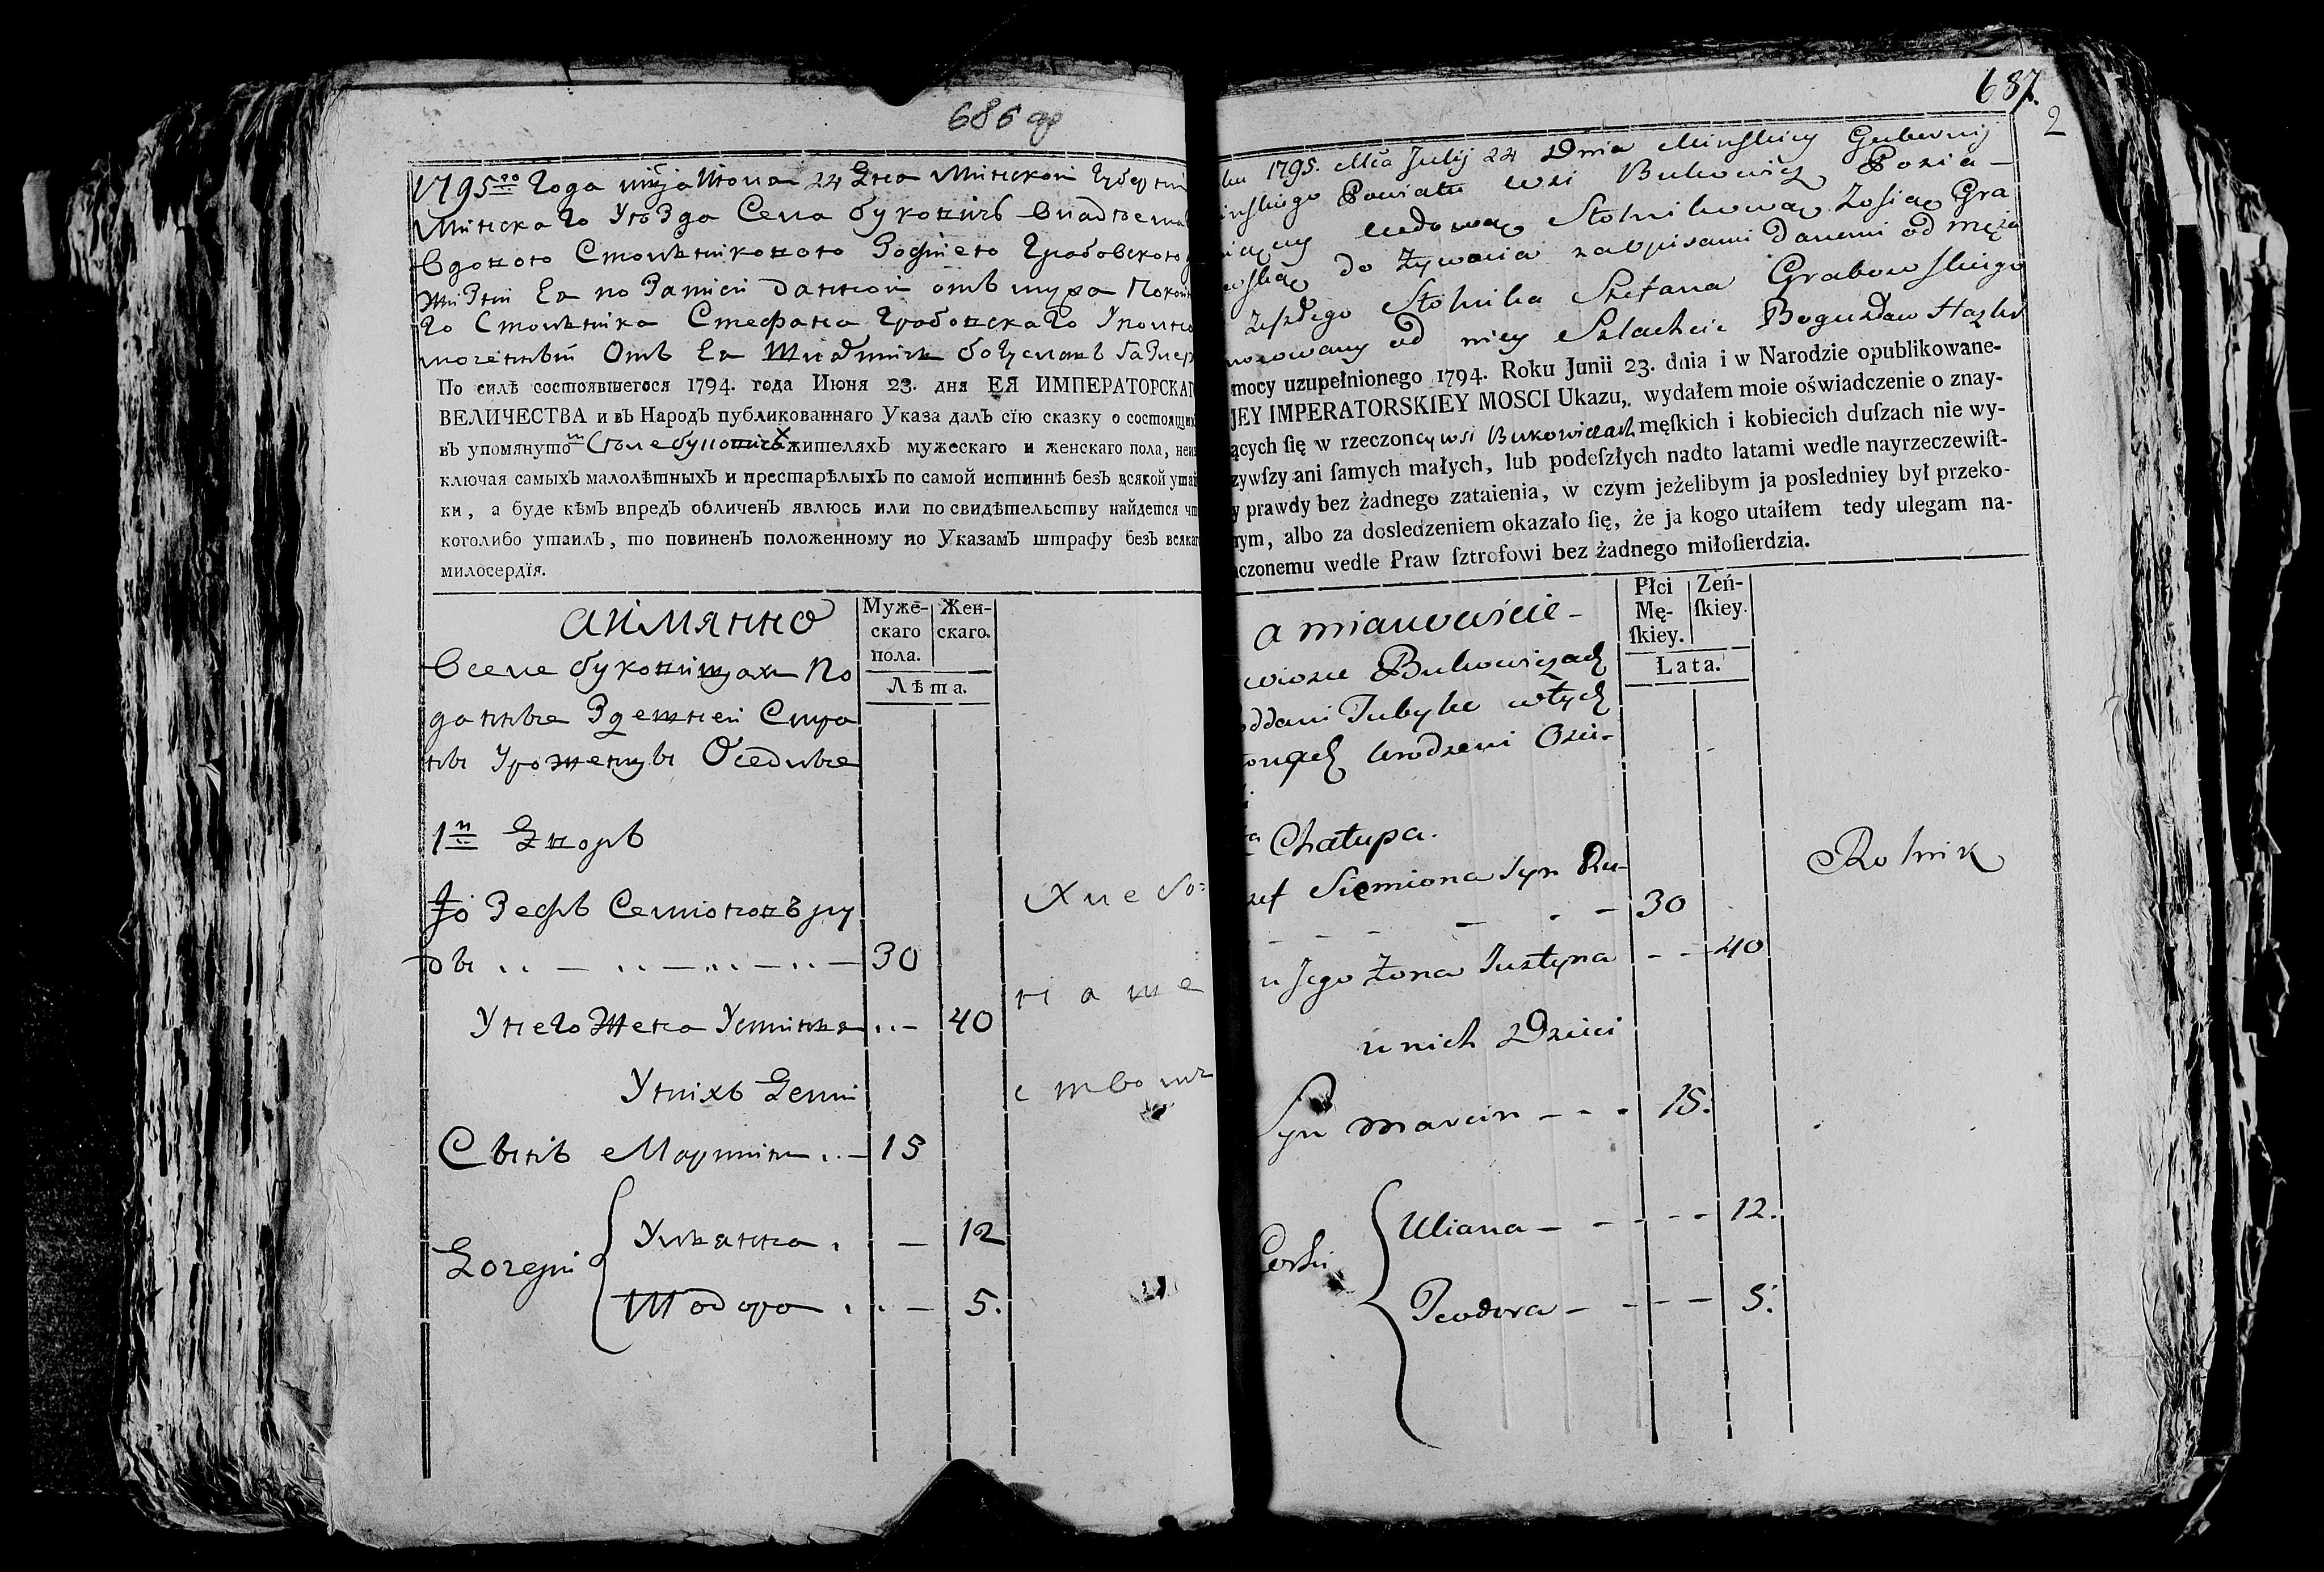 686 об
1795го Года мца Июля 24 Дня Минской Губернии
Минскаго Уезда Села букович владнема
вдового Стольникового Зофиею Грабовского
жизни Ея по Записи данной отъ мужа Покой
го Стольника Стефана Грабовскаго Уполно
моченный Отъ Ея Шляхтич богуслав
По силѣ состоявшегося 1794. года Июня 23. дня ЕЯ ИМПЕРАТОРСКАГ
ВЕЛИЧЕСТВА и въ Народъ публикованнаго Указа далъ сїю сказку о состоящих
въ упомянутом жителяхъ мужескаго и женскаго пола, неис
ключая самыхъ малолѣтныхъ и престарѣлыхъ по самой истиннѣ безъ всякой утай
ки, а буде кѣмъ впредь обличенъ явлюсь или по свидѣтельству найдется чт
коголибо утаилъ, то повиненъ положенному по Указамъ штрафу безъ всякаг
милосердїя.
аимянно
Муже-
скаго
пола.
Жен-
скаго.
Лѣта.
Вселе буковищах По
данные Здешней Сторо
ны Уроженцы Оседлые
1й Дворъ
Іозефъ Семионовъ ру
ды 30
У него Жена Устинья 40
У нихъ Дети
Сынъ Мартин 15
Дочери
Ульянна 12
Тодора 5.
Хлебо=
паше
ством
687.
2
ku 1795. Mca Julij 24 Dnia Minskiey Gubernij
inskiego Powiatu wsi Bukowicz Posia-
iący wdową Stolnikową Zosią Gra
wską do żywocia zapisami danemi od męża
zeszłego Stolnika Stefana Grabowskiego
mocowany od niey Szlachcic Bogusław
mocy uzupełnionego 1794. Roku Junii 23. dnia i w Narodzie opublikowane-
JEY IMPERATORSKIEY MOSCI Ukazu, wydałem moie oświadczenie o znay-
ących ſię w rzeczoncy wsi Bukowiczach męſkich i kobiecich duſzach nie wy-
zywſzy ani ſamych małych, lub podeſzłych nadto latami wedle nayrzeczewiſt-
y prawdy bez żadnego zataienia, w czym jeżelibym ja posledniey był przeko-
nym, albo za dosledzeniem okazało ſię, że ja kogo utaiłem tedy ulegam na-
aczonemu wedle Praw ſztrofowi bez żadnego miłoſierdzia.
a mianowicie -
Płci
Mę-
ſkiey.
Zeń-
ſkiey.
Lata.
wiosce Bukowiczach
oddani Tubylce w tych
ronach Urodzeni Osie-
Chałupa.
zef Siemiona Syn Ru-
30
u Jego Żona Justyna 40
u nich Dzieci
Syn Marcin 15.
Corki
Uliana 12.
Teodora 5.
Rolnik